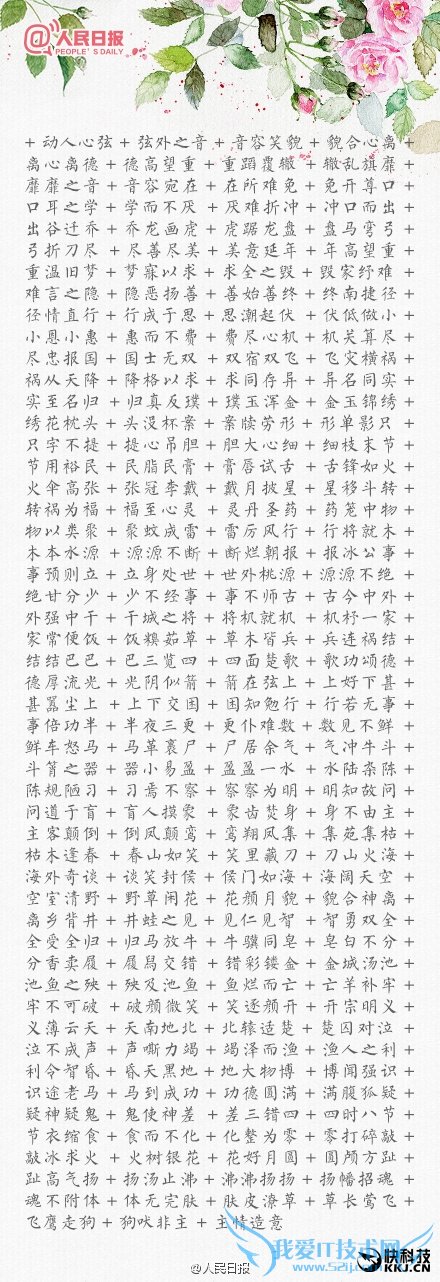 @人民日报
PEOPLE'S DAILY
+ 动人心弦 + 弦外之音 + 音容笑貌 + 貌合心离 +
离心离德 + 德高望重 + 重蹈覆辙 + 辙乱旗靡 +
靡靡之音 + 音容宛在 + 在所难免 + 免开尊口 +
口耳之学 + 学而不厌 + 厌难折冲 + 冲口而出 +
出谷迁乔 + 乔龙画虎 + 虎踞龙盘 + 盘马弯弓 +
弓折刀尽 + 尽善尽美 + 美意延年 + 年高望重 +
重温旧梦 + 梦寐以求 + 求全之毁 + 毁家纾难 +
难言之隐 + 隐恶扬善 + 善始善终 + 终南捷径 +
径情直行 + 行成于思 + 思潮起伏 + 伏低做小 +
小恩小惠 + 惠而不费 + 费尽心机 + 机关算尽 +
尽忠报国 + 国士无双 + 双宿双飞 + 飞灾横祸 +
祸从天降 + 降格以求 + 求同存异 + 异名同实 +
实至名归 + 归真反璞 + 璞玉浑金 + 金玉锦绣 +
绣花枕头 + 头没杯案 + 案牍劳形 + 形单影只 +
只字不提 + 提心吊胆 + 胆大心细 + 细枝末节 +
节用裕民 + 民脂民膏 + 膏唇试舌 + 舌锋如火 +
火伞高张 + 张冠李戴 + 戴月披星 + 星移斗转 +
转祸为福 + 福至心灵 + 灵丹圣药 + 药笼中物 +
物以类聚 + 聚蚊成雷 + 雷厉风行 + 行将就木 +
木本水源 + 源源不断 + 断烂朝报 + 报冰公事 +
事预则立 + 立身处世 + 世外桃源 + 源源不绝 +
绝甘分少 + 少不经事 + 事不师古 + 古今中外 +
外强中干 + 干城之将 + 将机就机 + 机杼一家 +
家常便饭 + 饭糗茹草 + 草木皆兵 + 兵连祸结 +
结结巴巴 + 巴三览四 + 四面楚歌 + 歌功颂德 +
德厚流光 + 光阴似箭 + 箭在弦上 + 上好下甚 +
甚嚣尘上 + 上下交困 + 困知勉行 + 行若无事 +
事倍功半 + 半夜三更 + 更仆难数 + 数见不鲜 +
鲜车怒马 + 马革裹尸 + 尸居余气 + 气冲牛斗 +
斗筲之器 + 器小易盈 + 盈盈一水 + 水陆杂陈 +
陈规陋习 + 习焉不察 + 察察为明 + 明知故问 +
问道于盲 + 盲人摸象 + 象齿焚身 + 身不由主 +
主客颠倒 + 倒凤颠鸾 + 鸾翔凤集 + 集苑集枯 +
枯木逢春 + 春山如笑 + 笑里藏刀 + 刀山火海 +
海外奇谈 + 谈笑封侯 + 侯门如海 + 海阔天空 +
空室清野 + 野草闲花 + 花颜月貌 + 貌合神离 +
离乡背井 + 井蛙之见 + 见仁见智 + 智勇双全 +
全受全归 + 归马放牛 + 牛骥同皂 + 皂白不分 +
分香卖履 + 履舄交错 + 错彩镂金 + 金城汤池 +
池鱼之殃 + 殃及池鱼 + 鱼烂而亡 + 亡羊补牢 +
牢不可破 + 破颜微笑 + 笑逐颜开 + 开宗明义 +
义薄云天 + 天南地北 + 北辕适楚 + 楚囚对泣 +
泣不成声 + 声嘶力竭 + 竭泽而渔 + 渔人之利 +
利令智昏 + 昏天黑地 + 地大物博 + 博闻强识 +
识途老马 + 马到成功 + 功德圆满 + 满腹狐疑 +
疑神疑鬼 + 鬼使神差 + 差三错四 + 四时八节 +
节衣缩食 + 食而不化 + 化整为零 + 零打碎敲 +
敲冰求火 + 火树银花 + 花好月圆 + 圆颅方趾 +
趾高气扬 + 扬汤止沸 + 沸沸扬扬 + 扬幡招魂 +
魂不附体 + 体无完肤 + 肤皮潦草 + 草长莺飞 +
飞鹰走狗 + 狗吠非主 + 主情造意
@人民日报
我爱IT技术网
www.52ij.com
快科技
KKJ.CN